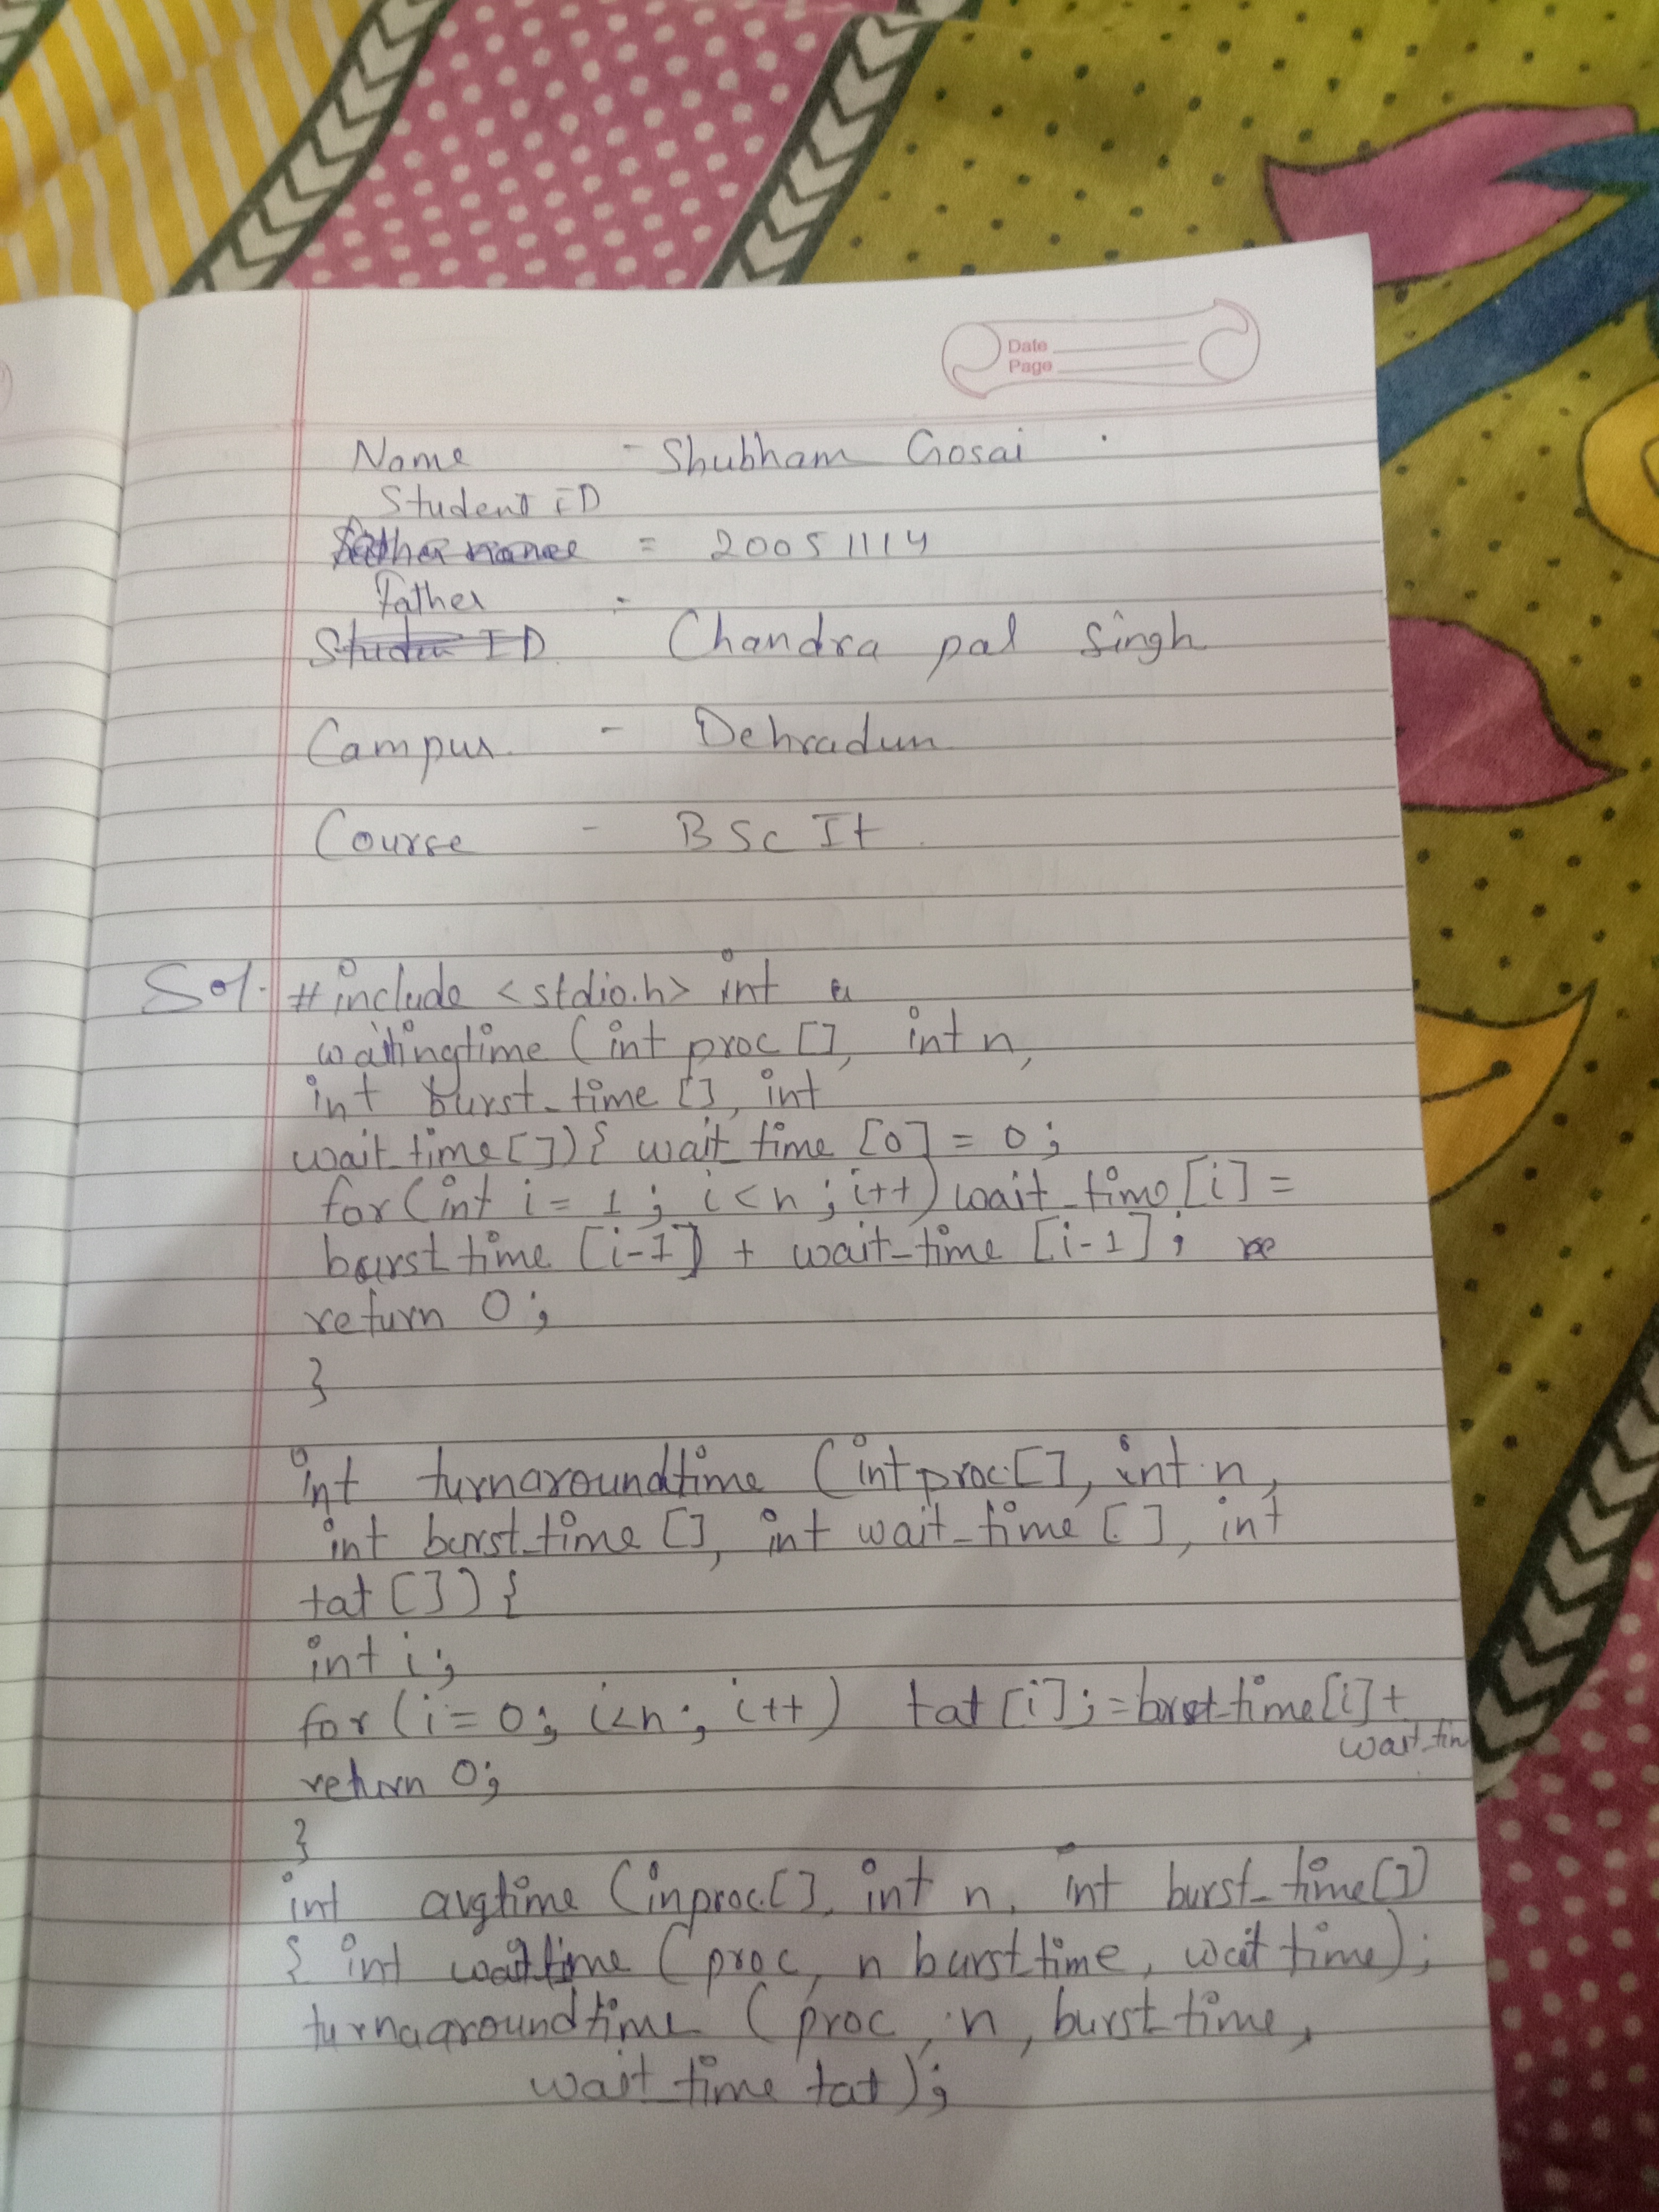 Date
Page
Name - Shubham Gosai
Student ID
Father name = 20051114
Father -
Student ID Chandra pal Singh
Campus - Dehradun
Course - BSc It
Sol. #include <stdio.h> int
waitingtime (int proc [], int n,
int burst_time [], int
wait_time[]){ wait_time [0] = 0;
for(int i = 1; i<n; i++) wait_time[i] =
burst time [i-1] + wait_time [i-1];
return 0;
}
int turnaroundtime (int proc[], int n,
int burst_time [], int wait_time [], int
tat []) {
int i;
for (i=0; i<n; i++) tat [i];=burst_time[i]+
wait_tim
return 0;
}
int avgtime (inproc[], int n, int burst_time[]
{ int waittime (proc, n burst time, wait time);
turnaaroundtime (proc, n, burst time,
wait time tat);